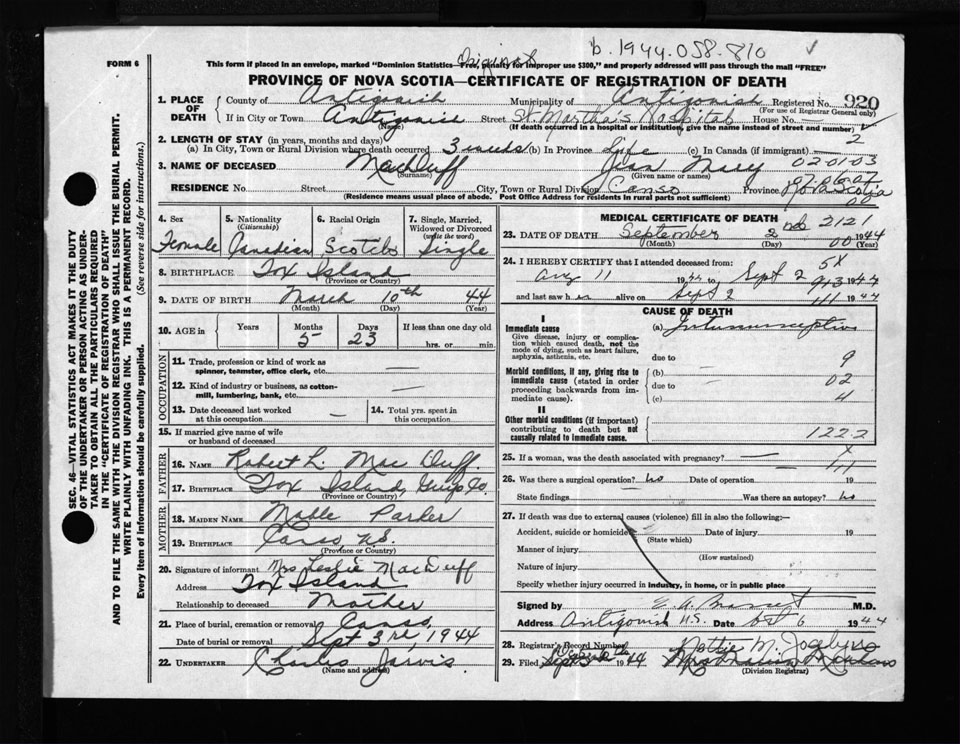 b. 1944-058-810
Original
FORM 6
This form if placed in an envelope, marked "Dominion Statistics—Free, penalty for improper use $300," and properly addressed will pass through the mail "FREE"
PROVINCE OF NOVA SCOTIA—CERTIFICATE OF REGISTRATION OF DEATH
SEC. 46—VITAL STATISTICS ACT MAKES IT THE DUTY
OF THE UNDERTAKER OR PERSON ACTING AS UNDER-
TAKER TO OBTAIN ALL THE PARTICULARS REQUIRED
IN THE "CERTIFICATE OF REGISTRATION OF DEATH"
AND TO FILE THE SAME WITH THE DIVISION REGISTRAR WHO SHALL ISSUE THE BURIAL PERMIT.
WRITE PLAINLY WITH UNFADING INK. THIS IS A PERMANENT RECORD.
Every item of Information should be carefully supplied. (See reverse side for instructions.)
1. PLACE OF DEATH County of Antigonish Municipality of Antigonish Registered No. 920
(For use of Registrar General only)
If in City or Town Antigonish Street St. Martha's Hospital House No. —
(Name) (If death occurred in a hospital or institution, give the name instead of street and number)
2. LENGTH OF STAY (in years, months and days)
(a) In City, Town or Rural Division where death occurred 3 weeks (b) In Province Life (c) In Canada (if immigrant) 2
3. NAME OF DECEASED MacDuff Jean Mary 02-01-03
(Surname) (Given name or names)
RESIDENCE No. Street City, Town or Rural Division Canso Province Nova Scotia
(Residence means usual place of abode. Post Office Address for residents in rural parts not sufficient) 00
4. Sex 5. Nationality (Citizenship) 6. Racial Origin 7. Single, Married, Widowed or Divorced (write the word)
Female Canadian Scotch Single
8. BIRTHPLACE Fox Island
(Province or Country)
9. DATE OF BIRTH March 10th 44
(Month) (Day) (Year)
10. AGE in Years Months Days If less than one day old
5 23 hrs. or min.
OCCUPATION
11. Trade, profession or kind of work as
spinner, teamster, office clerk, etc. —
12. Kind of industry or business, as cotton-
mill, lumbering, bank, etc. —
13. Date deceased last worked
at this occupation —
14. Total yrs. spent in
this occupation
15. If married give name of wife
or husband of deceased
FATHER
16. NAME Robert L. Mac Duff
17. BIRTHPLACE Fox Island, Guys Co.
(Province or Country)
MOTHER
18. MAIDEN NAME Mable Parker
19. BIRTHPLACE Canso, N.S.
(Province or Country)
20. Signature of informant Mrs Leslie MacDuff
Address Fox Island
Relationship to deceased Mother
21. Place of burial, cremation or removal Canso,
Date of burial or removal Sept 3rd, 1944
22. UNDERTAKER Charles Jarvis
(Name and address)
MEDICAL CERTIFICATE OF DEATH
2121
23. DATE OF DEATH September 2nd 1944
(Month) (Day) (Year)
24. I HEREBY CERTIFY that I attended deceased from: 5X
Aug 11 1944 Sept 2 1944
and last saw her alive on Sept 2 1944
CAUSE OF DEATH
I
Immediate cause (a) Intussusception
Give disease, injury or complica-
tion which caused death, not the
mode of dying, such as heart failure,
asphyxia, asthenia, etc. due to 9
Morbid conditions, if any, giving rise to
immediate cause (stated in order
proceeding backwards from im-
mediate cause). (b) — 02
due to
(c) 4
II
Other morbid conditions (if important)
contributing to death but not
causally related to immediate cause. 1222
25. If a woman, was the death associated with pregnancy? —
26. Was there a surgical operation? no Date of operation 19
State findings Was there an autopsy? no
27. If death was due to external causes (violence) fill in also the following:—
Accident, suicide or homicide Date of injury 19
(State which)
Manner of injury
(How sustained)
Nature of injury
Specify whether injury occurred in industry, in home, or in public place
Signed by M.D.
Address Antigonish N.S. Oct 6 1944
28. Registrar's Record Number Nettie M. Jocelyn
29. Filed 1944
(Division Registrar)